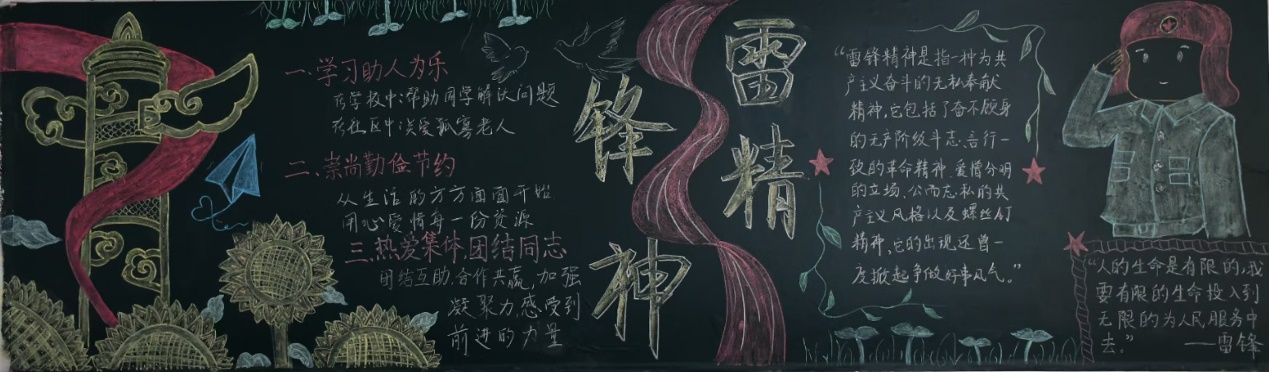 一.学习助人为乐
在学校中:帮助同学解决问题
在社区中:关爱孤寡老人
二.崇尚勤俭节约
从生活的方方面面开始
用心爱惜每一份资源
三.热爱集体,团结同志
团结互助,合作共赢,加强
凝聚力,感受到
前进的力量
雷锋精神
“雷锋精神是指一种为共
产主义奋斗的无私奉献
精神,它包括了奋不顾身
的无产阶级斗志.言行一
致的革命精神.爱憎分明
的立场.公而忘私的共
产主义风格以及螺丝钉
精神,它的出现还曾一
度掀起争做好事风气。”
“人的生命是有限的,我
要有限的生命投入到
无限的为人民服务中
去。” ——雷锋